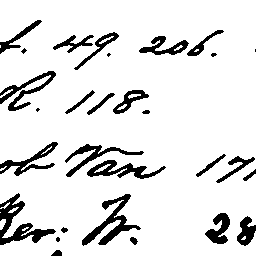 f. 49. 206.
R. 118.
ob Van 171
Rev: W. 28